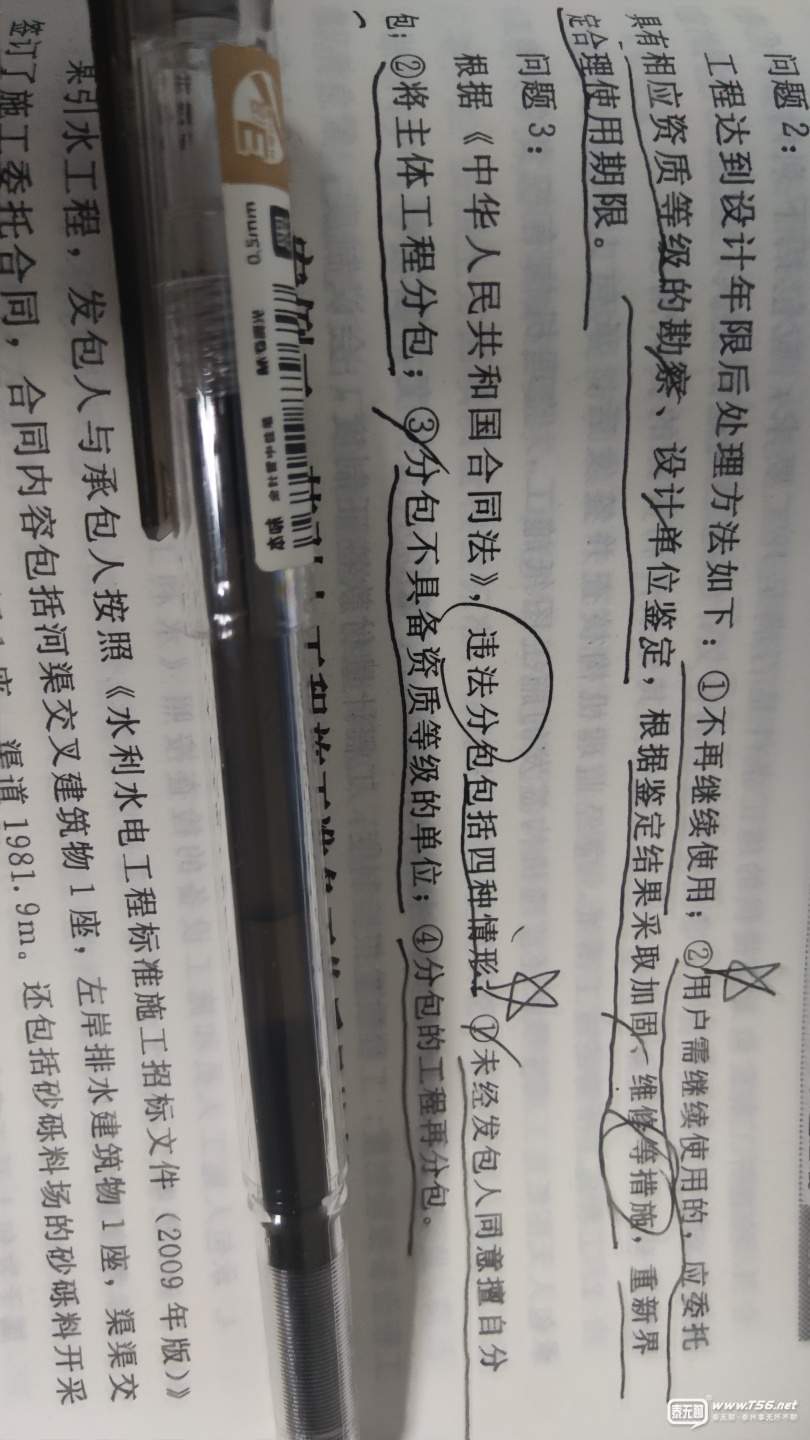 问题 2：
工程达到设计年限后处理方法如下：①不再继续使用；②用户需继续使用的，应委托
具有相应资质等级的勘察、设计单位鉴定，根据鉴定结果采取加固、维修等措施，重新界
定合理使用期限。
问题 3：
根据《中华人民共和国合同法》，违法分包包括四种情形：①未经发包人同意擅自分
包；②将主体工程分包；③分包不具备资质等级的单位；④分包的工程再分包。
0.5mm
某引水工程，发包人与承包人按照《水利水电工程标准施工招标文件（2009 年版）》
签订了施工委托合同，合同内容包括河渠交叉建筑物 1 座，左岸排水建筑物 1 座，渠渠交
1 座，渠道 1981.9m。还包括砂砾料场的砂砾料开采
泰无聊 www.T56.net